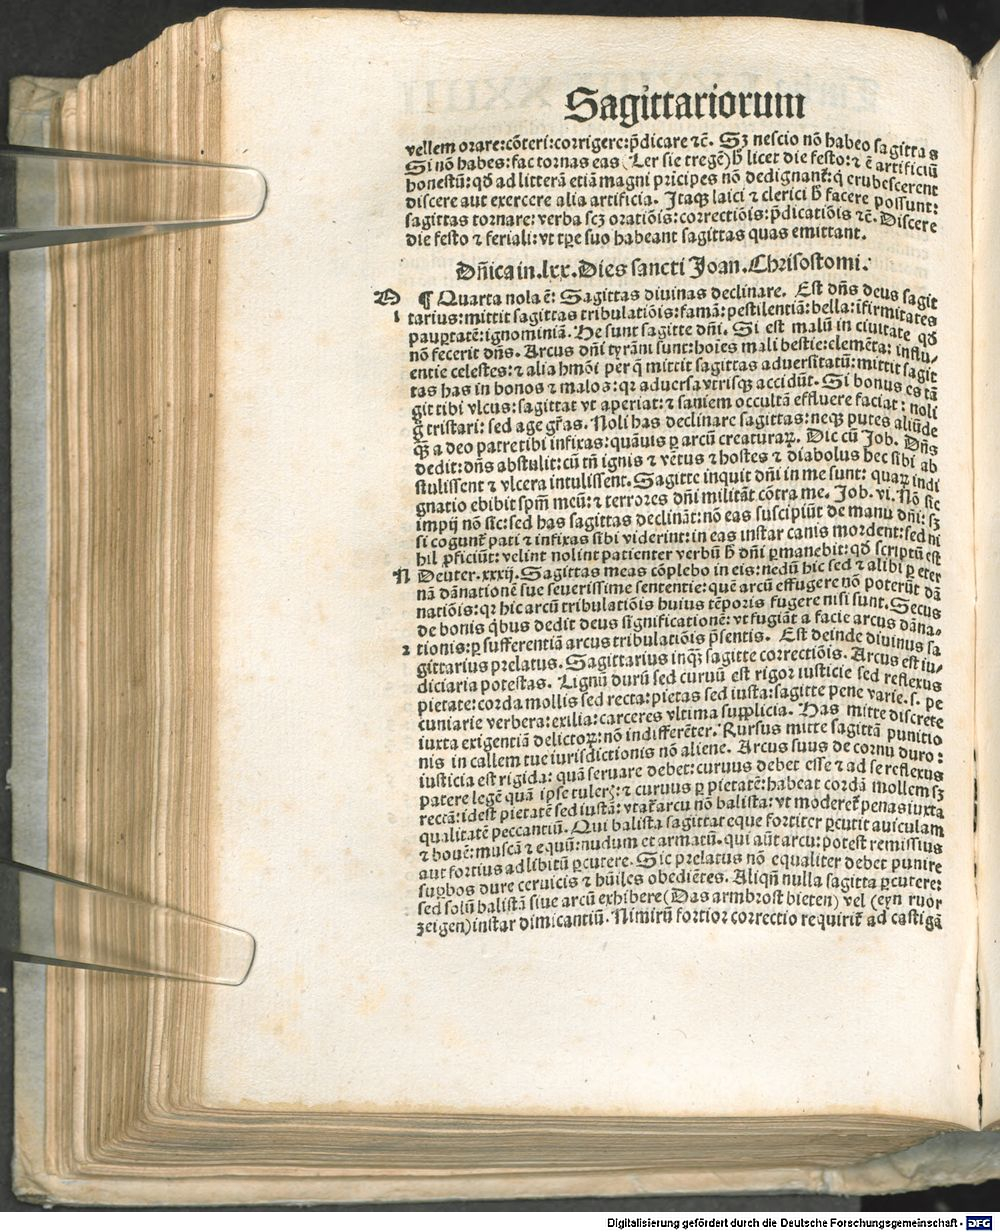 Sagittariorum
vellem orare:cōteri:corrigere:p̄dicare ⁊c̄. Sʒ nescio nō habeo sagittas
Si nō habes:fac tornas eas (Ler sie tregē) h̄ licet die festo:⁊ ē artificiū
honestū:qd̄ ad litterā etiā magni prīcipes nō dedignant̄:q̄ erubescerent
discere aut exercere alia artificia. Itaqꝫ laici ⁊ clerici h̄ facere possunt:
sagittas tornare:verba scʒ oratiōis:correctiōis:p̄dicatiōis ⁊c̄. Discere
die festo ⁊ feriali:vt tp̄e suo habeant sagittas quas emittant.
Dn̄ica in.lxx.Dies sancti Joan.Chrisostomi.
¶ Quarta nola ē: Sagittas diuinas declinare. Est dn̄s deus sagit
1 tarius:mittit sagittas tribulatiōis:famā:pestilentiā:bella:īfirmitates
paup̱tatē:ignominiā. He sunt sagitte dn̄i. Si est malū in ciuitate qd̄
nō fecerit dn̄s. Arcus dn̄i tyrāni sunt:hoīes mali bestie:elemēta: influ-
entie celestes:⁊ alia hmōi per q̄ mittit sagittas aduersitatū:mittit sagit
tas has in bonos ⁊ malos:qꝛ aduersa vtrisqꝫ accidūt. Si bonus es tā
git tibi vlcus:sagittat vt aperiat:⁊ saniem occultā effluere faciat: noli
g̊ tristari: sed age gr̄as. Noli has declinare sagittas:neqꝫ putes aliūde
qꝫ̄ a deo patre tibi infixas:quāuis p̱ arcū creaturaꝝ. Dic cū Job. Dn̄s
dedit:dn̄s abstulit:cū tn̄ ignis ⁊ vētus ⁊ hostes ⁊ diabolus hec sibi ab
stulissent ⁊ vlcera intulissent. Sagitte inquit dn̄i in me sunt: quaꝝ indi
gnatio ebibit spm̄ meū:⁊ terrores dn̄i militāt cōtra me. Job. vi. Nō sic
impij nō sic:sed has sagittas declināt:nō eas suscipiūt de manu dn̄i:sʒ
si cogunt̄ pati ⁊ infixas sibi viderint:in eas instar canis mordent:sed ni
hil ꝓficiūt: velint nolint patienter verbū h̄ dn̄i p̱manebit:qd̄ scriptū est
N Deuter.xxxij. Sagittas meas cōplebo in eis:nedū hic sed ⁊ alibi p̱ eter
nā dānationē sue seuerissime sententie:quē arcū effugere nō poterūt dā
natiōis:qꝛ hic arcū tribulatiōis huius tēporis fugere nisi sunt. Secus
de bonis q̇bus dedit deus significationē:vt fugiāt a facie arcus dāna-
2 tionis:p̱ sufferentiā arcus tribulatiōis p̄sentis. Est deinde diuinus sa
gittarius prelatus. Sagittarius inqꝫ̄ sagitte correctiōis. Arcus est iu-
diciaria potestas. Lignū durū sed curuū est rigor iusticie sed reflexus
pietate:corda mollis sed recta:pietas sed iusta:sagitte pene varie.s. pe
cuniarie verbera:exilia:carceres vltima supplicia. Has mitte discrete
iuxta exigentiā delictoꝝ:nō indifferēter. Rursus mitte sagittā punitio
nis in callem tue iurisdictionis nō aliene. Arcus suus de cornu duro:
iusticia est rigida: quā seruare debet:curuus debet esse ⁊ ad se reflexus
patere legē quā ipse tulerʒ:⁊ curuus p̱ pietatē:habeat cordā mollem sʒ
rectā:idest pietatē sed iustā:vtat̄ arcu nō balista:vt moderet̄ penas iuxta
qualitatē peccantiū. Qui balista sagittat eque fortiter p̱cutit auiculam
⁊ bouē:muscā ⁊ equū:nudum et armatū.qui aūt arcu:potest remissius
aut fortius ad libitū p̱cutere. Sic prelatus nō equaliter debet punire
sup̱bos dure ceruicis ⁊ hūiles obediētes. Aliqn̄ nulla sagitta p̱cutere:
sed solū balistā siue arcū exhibere (Das armbrost bieten) vel (eyn ruor
zeigen) instar dimicantiū. Nimirū fortior correctio requirit̄ ad castigā
Digitalisierung gefördert durch die Deutsche Forschungsgemeinschaft - DFG